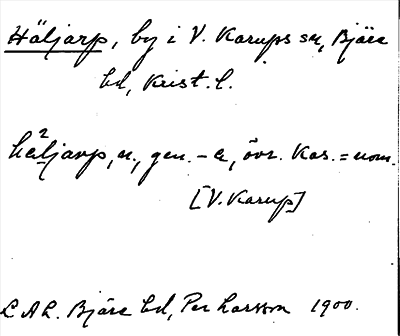 Häljarp, by i V. Karups sn, Bjäre
hd, Krist. l.
hä²ljarp, n., gen. – a, övr. kas. = nom.
[V. Karup]
L A L. Bjäre hd, Per Larsson 1900.